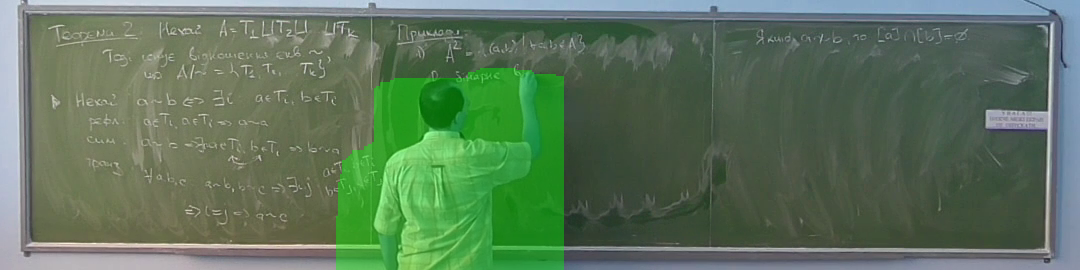 Теорема 2. Нехай A=T₁⊔T₂⊔ ⊔Tₖ
Тоді існує відношення екв ~
що A/~ = {T₁, T₂, Tₖ}
Нехай a~b ⟺ ∃i: a∈Tᵢ, b∈Tᵢ
рефл: a∈Tᵢ, a∈Tᵢ ⇒ a~a
сим: a~b ⇒ ∃i a∈Tᵢ, b∈Tᵢ ⇒ b~a
транз ∀a,b,c: a~b, b~c ⇒ ∃i,j
a∈Tᵢ, b∈Tᵢ
b∈Tⱼ
⇒ i=j ⇒ a~c
Приклади.
1) A² = {(a,b) | a,b∈A}
бінарне
Якщо a≁b, то [a]∩[b]=∅